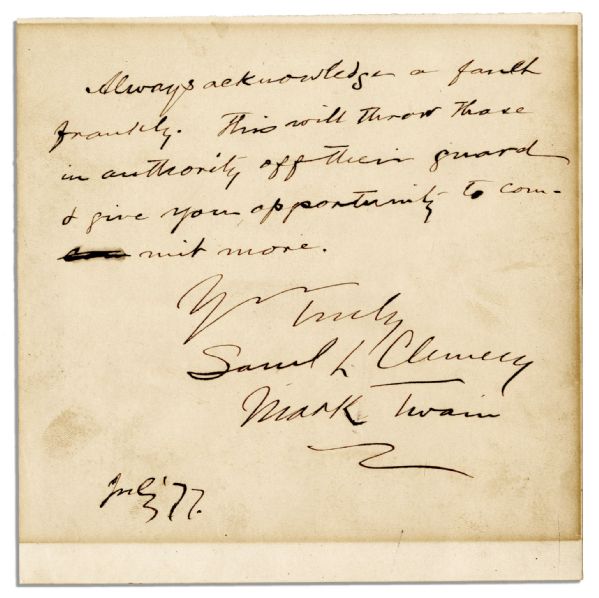 Always acknowledge a fault
frankly. This will throw those
in authority off their guard
& give you opportunity to com-
mit more.
Yrs Truly
Saml L Clemens
Mark Twain
July '77.